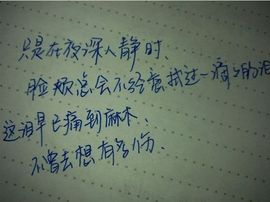 只是在夜深人静时
脸颊总会不经意拭过一滴滴的泪
这泪早已痛到麻木、
不曾去想有多伤、